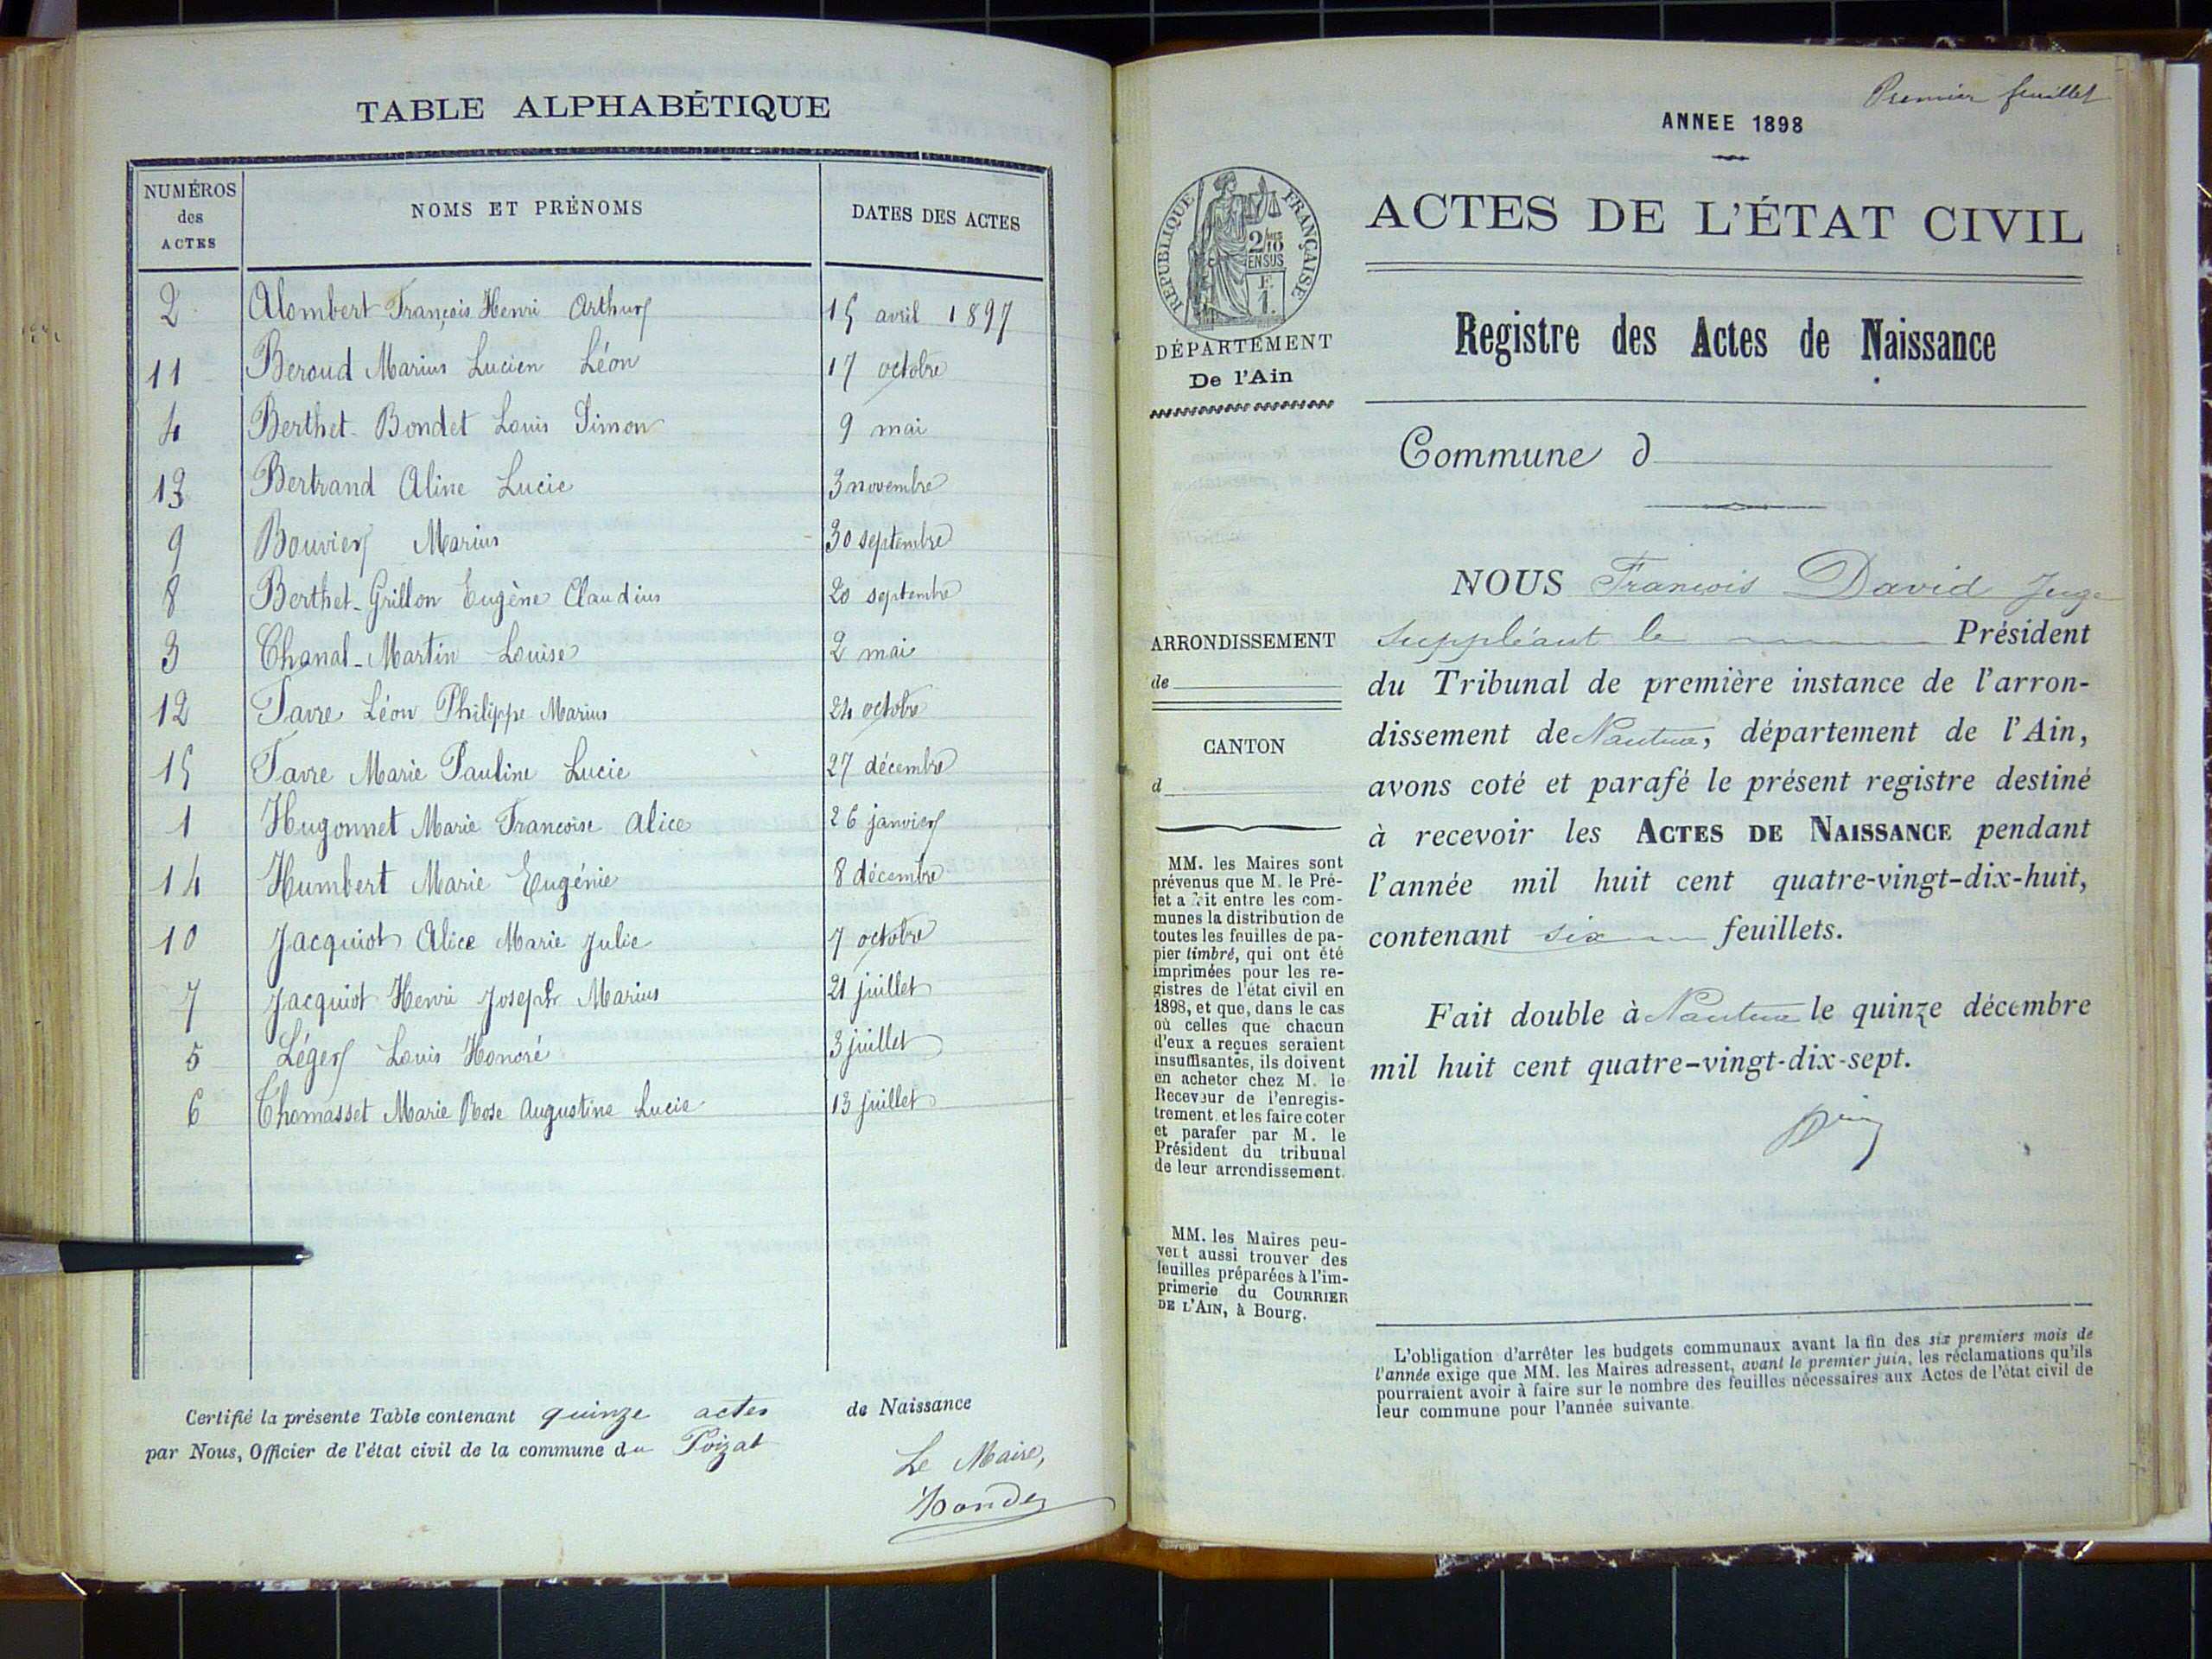 TABLE ALPHABÉTIQUE
NUMÉROS des ACTES NOMS ET PRÉNOMS DATES DES ACTES
2 Alombert François Henri Arthur 15 avril 1897
11 Beroud Marius Lucien Léon 17 octobre
4 Berthet-Bondet Louis Simon 9 mai
13 Bertrand Aline Lucie 3 novembre
9 Bouvier Marius 30 septembre
8 Berthet-Grillon Eugène Claudius 20 septembre
3 Chanal-Martin Louise 2 mai
12 Favre Léon Philippe Marius 24 octobre
15 Favre Marie Pauline Lucie 27 décembre
1 Hugonnet Marie Francoise Alice 26 janvier
14 Humbert Marie Eugénie 8 décembre
10 Jacquiot Alice Marie Julie 7 octobre
7 Jacquiot Henri Joseph Marius 21 juillet
5 Léger Louis Honoré 3 juillet
6 Thomasset Marie Rose Augustine Lucie 13 juillet
Certifié la présente Table contenant quinze actes de Naissance
par Nous, Officier de l'état civil de la commune du Poizat
Le Maire,
Premier feuillet
ANNEE 1898
RÉPUBLIQUE FRANÇAISE
2/10
EN SUS
F.
1.
DÉPARTEMENT
De l'Ain
ACTES DE L'ÉTAT CIVIL
Registre des Actes de Naissance
Commune d
ARRONDISSEMENT
de
CANTON
d
MM. les Maires sont
prévenus que M. le Pré-
fet a fait entre les com-
munes la distribution de
toutes les feuilles de pa-
pier timbré, qui ont été
imprimées pour les re-
gistres de l'état civil en
1898, et que, dans le cas
où celles que chacun
d'eux a reçues seraient
insuffisantes, ils doivent
en acheter chez M. le
Receveur de l'enregis-
trement, et les faire coter
et parafer par M. le
Président du tribunal
de leur arrondissement.
MM. les Maires peu-
vent aussi trouver des
feuilles préparées à l'im-
primerie du COURRIER
DE L'AIN, à Bourg.
NOUS François David Juge
Suppléant le Président
du Tribunal de première instance de l'arron-
dissement de Nantua, département de l'Ain,
avons coté et parafé le présent registre destiné
à recevoir les ACTES DE NAISSANCE pendant
l'année mil huit cent quatre-vingt-dix-huit,
contenant six feuillets.
Fait double à Nantua le quinze décembre
mil huit cent quatre-vingt-dix-sept.
L'obligation d'arrêter les budgets communaux avant la fin des six premiers mois de
l'année exige que MM. les Maires adressent, avant le premier juin, les réclamations qu'ils
pourraient avoir à faire sur le nombre des feuilles nécessaires aux Actes de l'état civil de
leur commune pour l'année suivante.